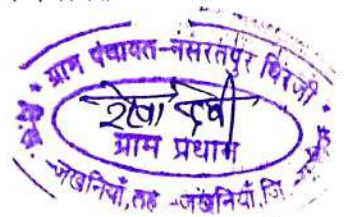 ग्राम पंचायत-नसरतपुर घिरजी
रेखा देवी
ग्राम प्रधान
-जखनियाँ, तह -जखनियाँ, जि